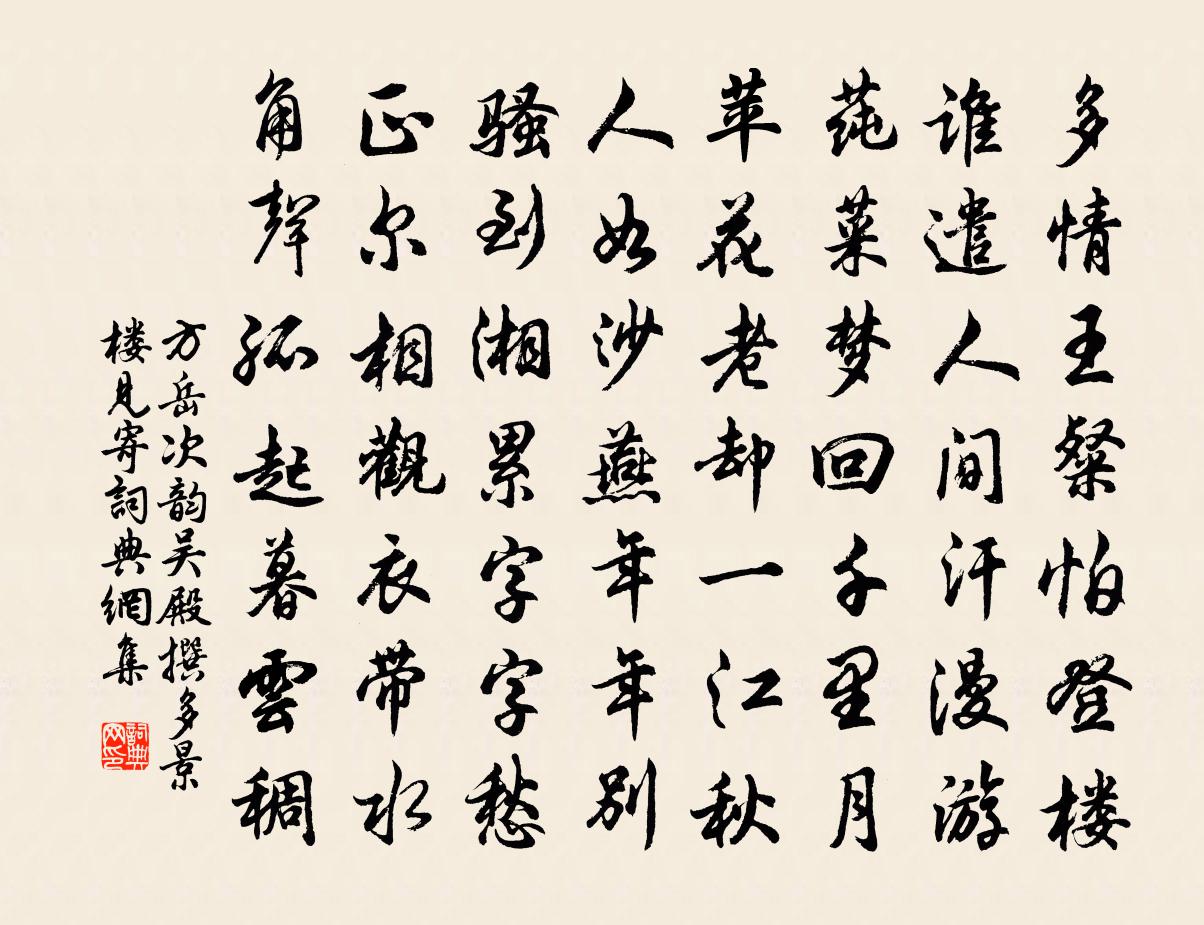 多情王粲怕登楼
谁遣人间汗漫游
莼菜梦回千里月
苹花老却一江秋
人如沙燕年年别
骚到湘累字字愁
正尔相觀衣带水
角聲孤起暮雲稠
方岳次韵吴殿撰多景
楼見寄詞典網集
詞典
网印